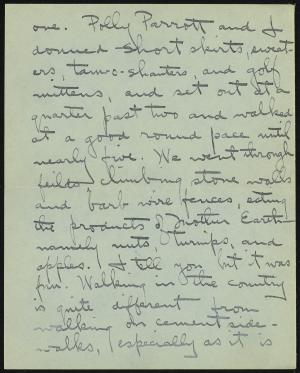 one. Polly Parrott and I
donned short skirts, sweat-
ers, tam-o-shanters, and golf
mittens, and set out at a
quarter past two and walked
at a good round pace until
nearly five. We went through
feilds climbing stone walls
and barb wire fences, eating
the products of Mother Earth–
namely nuts, turnips, and
apples. I tell you but it was
fun. Walking in the country
is quite different from
walking on cement side-
walks, (especially as it is